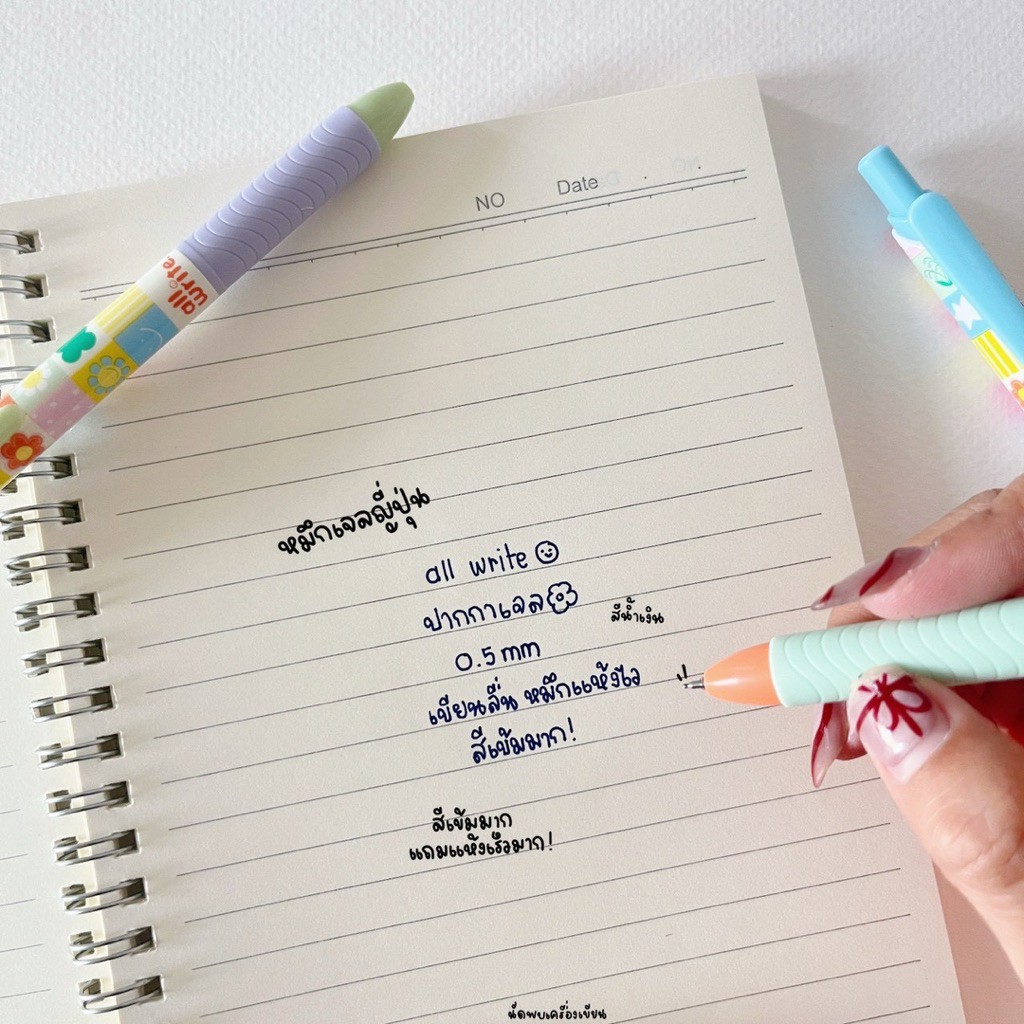 NO Date
all write
หมึกเจลญี่ปุ่น
all write
ปากกาเจล
สีน้ำเงิน
0.5 mm
เขียนลื่น หมึกแห้งไว
สีเข้มมาก!
สีเข้มมาก
แถมแห้งเร็วมาก!
นัดพบเครื่องเขียน